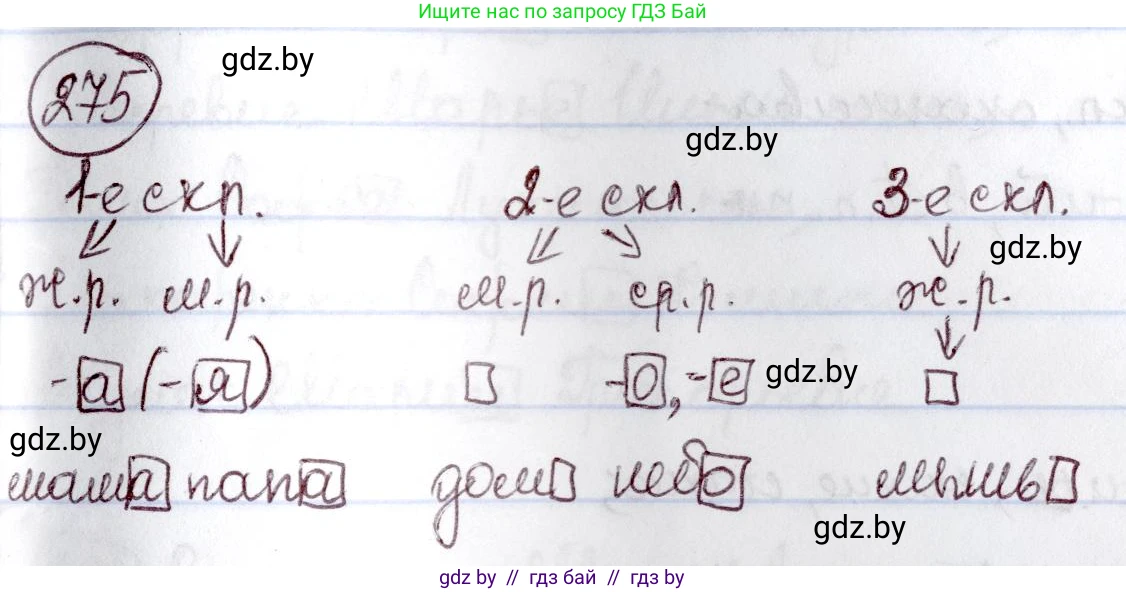 Ищите нас по запросу ГДЗ Бай
275
gdz.by
gdz.by
1-е скл. 2-е скл. 3-е скл.
gdz.by
ж.р. м.р. м.р. ср.р. ж.р.
-а (-я) -о, -е
gdz.by
gdz.by
мама папа дом небо мышь
gdz.by
gdz by // гдз бай // gdz by